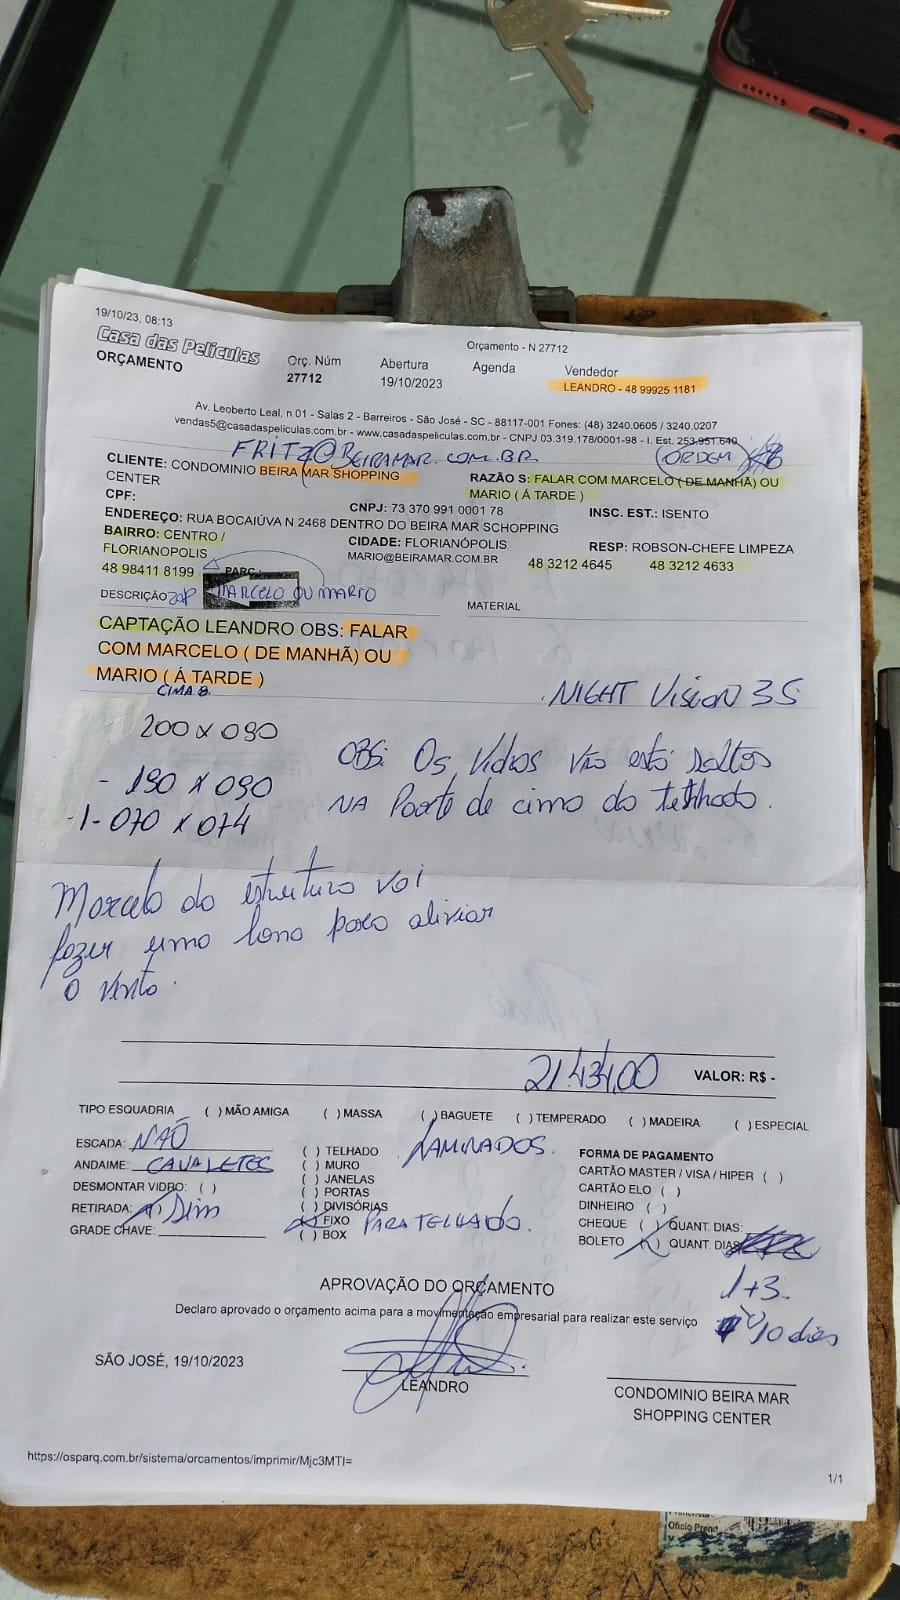 19/10/23, 08:13
Orçamento - N 27712
Casa das Peliculas
ORÇAMENTO
Orç. Núm
27712
Abertura
19/10/2023
Agenda
Vendedor
LEANDRO - 48 99925 1181
Av. Leoberto Leal, n 01 - Salas 2 - Barreiros - São José - SC - 88117-001 Fones: (48) 3240.0605 / 3240.0207
vendas5@casadaspeliculas.com.br - www.casadaspeliculas.com.br - CNPJ 03.319.178/0001-98 - I. Est. 253.951.640
FRITZ@BEIRAMAR.COM.BR
(ORDEM)
CLIENTE: CONDOMINIO BEIRA MAR SHOPPING
CENTER
RAZÃO S: FALAR COM MARCELO ( DE MANHÃ) OU
MARIO ( Á TARDE )
CPF:
CNPJ: 73 370 991 0001 78
INSC. EST.: ISENTO
ENDEREÇO: RUA BOCAIÚVA N 2468 DENTRO DO BEIRA MAR SCHOPPING
BAIRRO: CENTRO /
FLORIANOPOLIS
CIDADE: FLORIANÓPOLIS
RESP: ROBSON-CHEFE LIMPEZA
MARIO@BEIRAMAR.COM.BR
48 3212 4645
48 3212 4633
48 98411 8199
PARC.:
DESCRIÇÃO
MARCELO OU MARIO
MATERIAL
CAPTAÇÃO LEANDRO OBS: FALAR
COM MARCELO ( DE MANHÃ) OU
MARIO ( Á TARDE )
CIMA 8.
NIGHT Vision 35
200 x 090
- 190 x 090
-1- 070 x 074
OBS: Os Vidros Vão está Soltos
NA Parte de cima do telhado.
Marcelo da estrutura vai
fazer uma lona para aliviar
o vento.
21.434,00
VALOR: R$ -
TIPO ESQUADRIA
( ) MÃO AMIGA
( ) MASSA
( ) BAGUETE
( ) TEMPERADO
( ) MADEIRA
( ) ESPECIAL
ESCADA: NÃO
ANDAIME: CAVALETES
DESMONTAR VIDRO: ( )
RETIRADA: (X) Sim
GRADE CHAVE:
( ) TELHADO
( ) MURO
( ) JANELAS
( ) PORTAS
( ) DIVISÓRIAS
(X) FIXO
( ) BOX
LAMINADOS.
PARA TELHADO.
FORMA DE PAGAMENTO
CARTÃO MASTER / VISA / HIPER ( )
CARTÃO ELO ( )
DINHEIRO ( )
CHEQUE ( ) QUANT. DIAS:
BOLETO (X) QUANT. DIAS
1+3.
10 dias
APROVAÇÃO DO ORÇAMENTO
Declaro aprovado o orçamento acima para a movimentação empresarial para realizar este serviço
SÃO JOSÉ, 19/10/2023
LEANDRO
CONDOMINIO BEIRA MAR
SHOPPING CENTER
https://osparq.com.br/sistema/orcamentos/imprimir/Mjc3MTI=
1/1